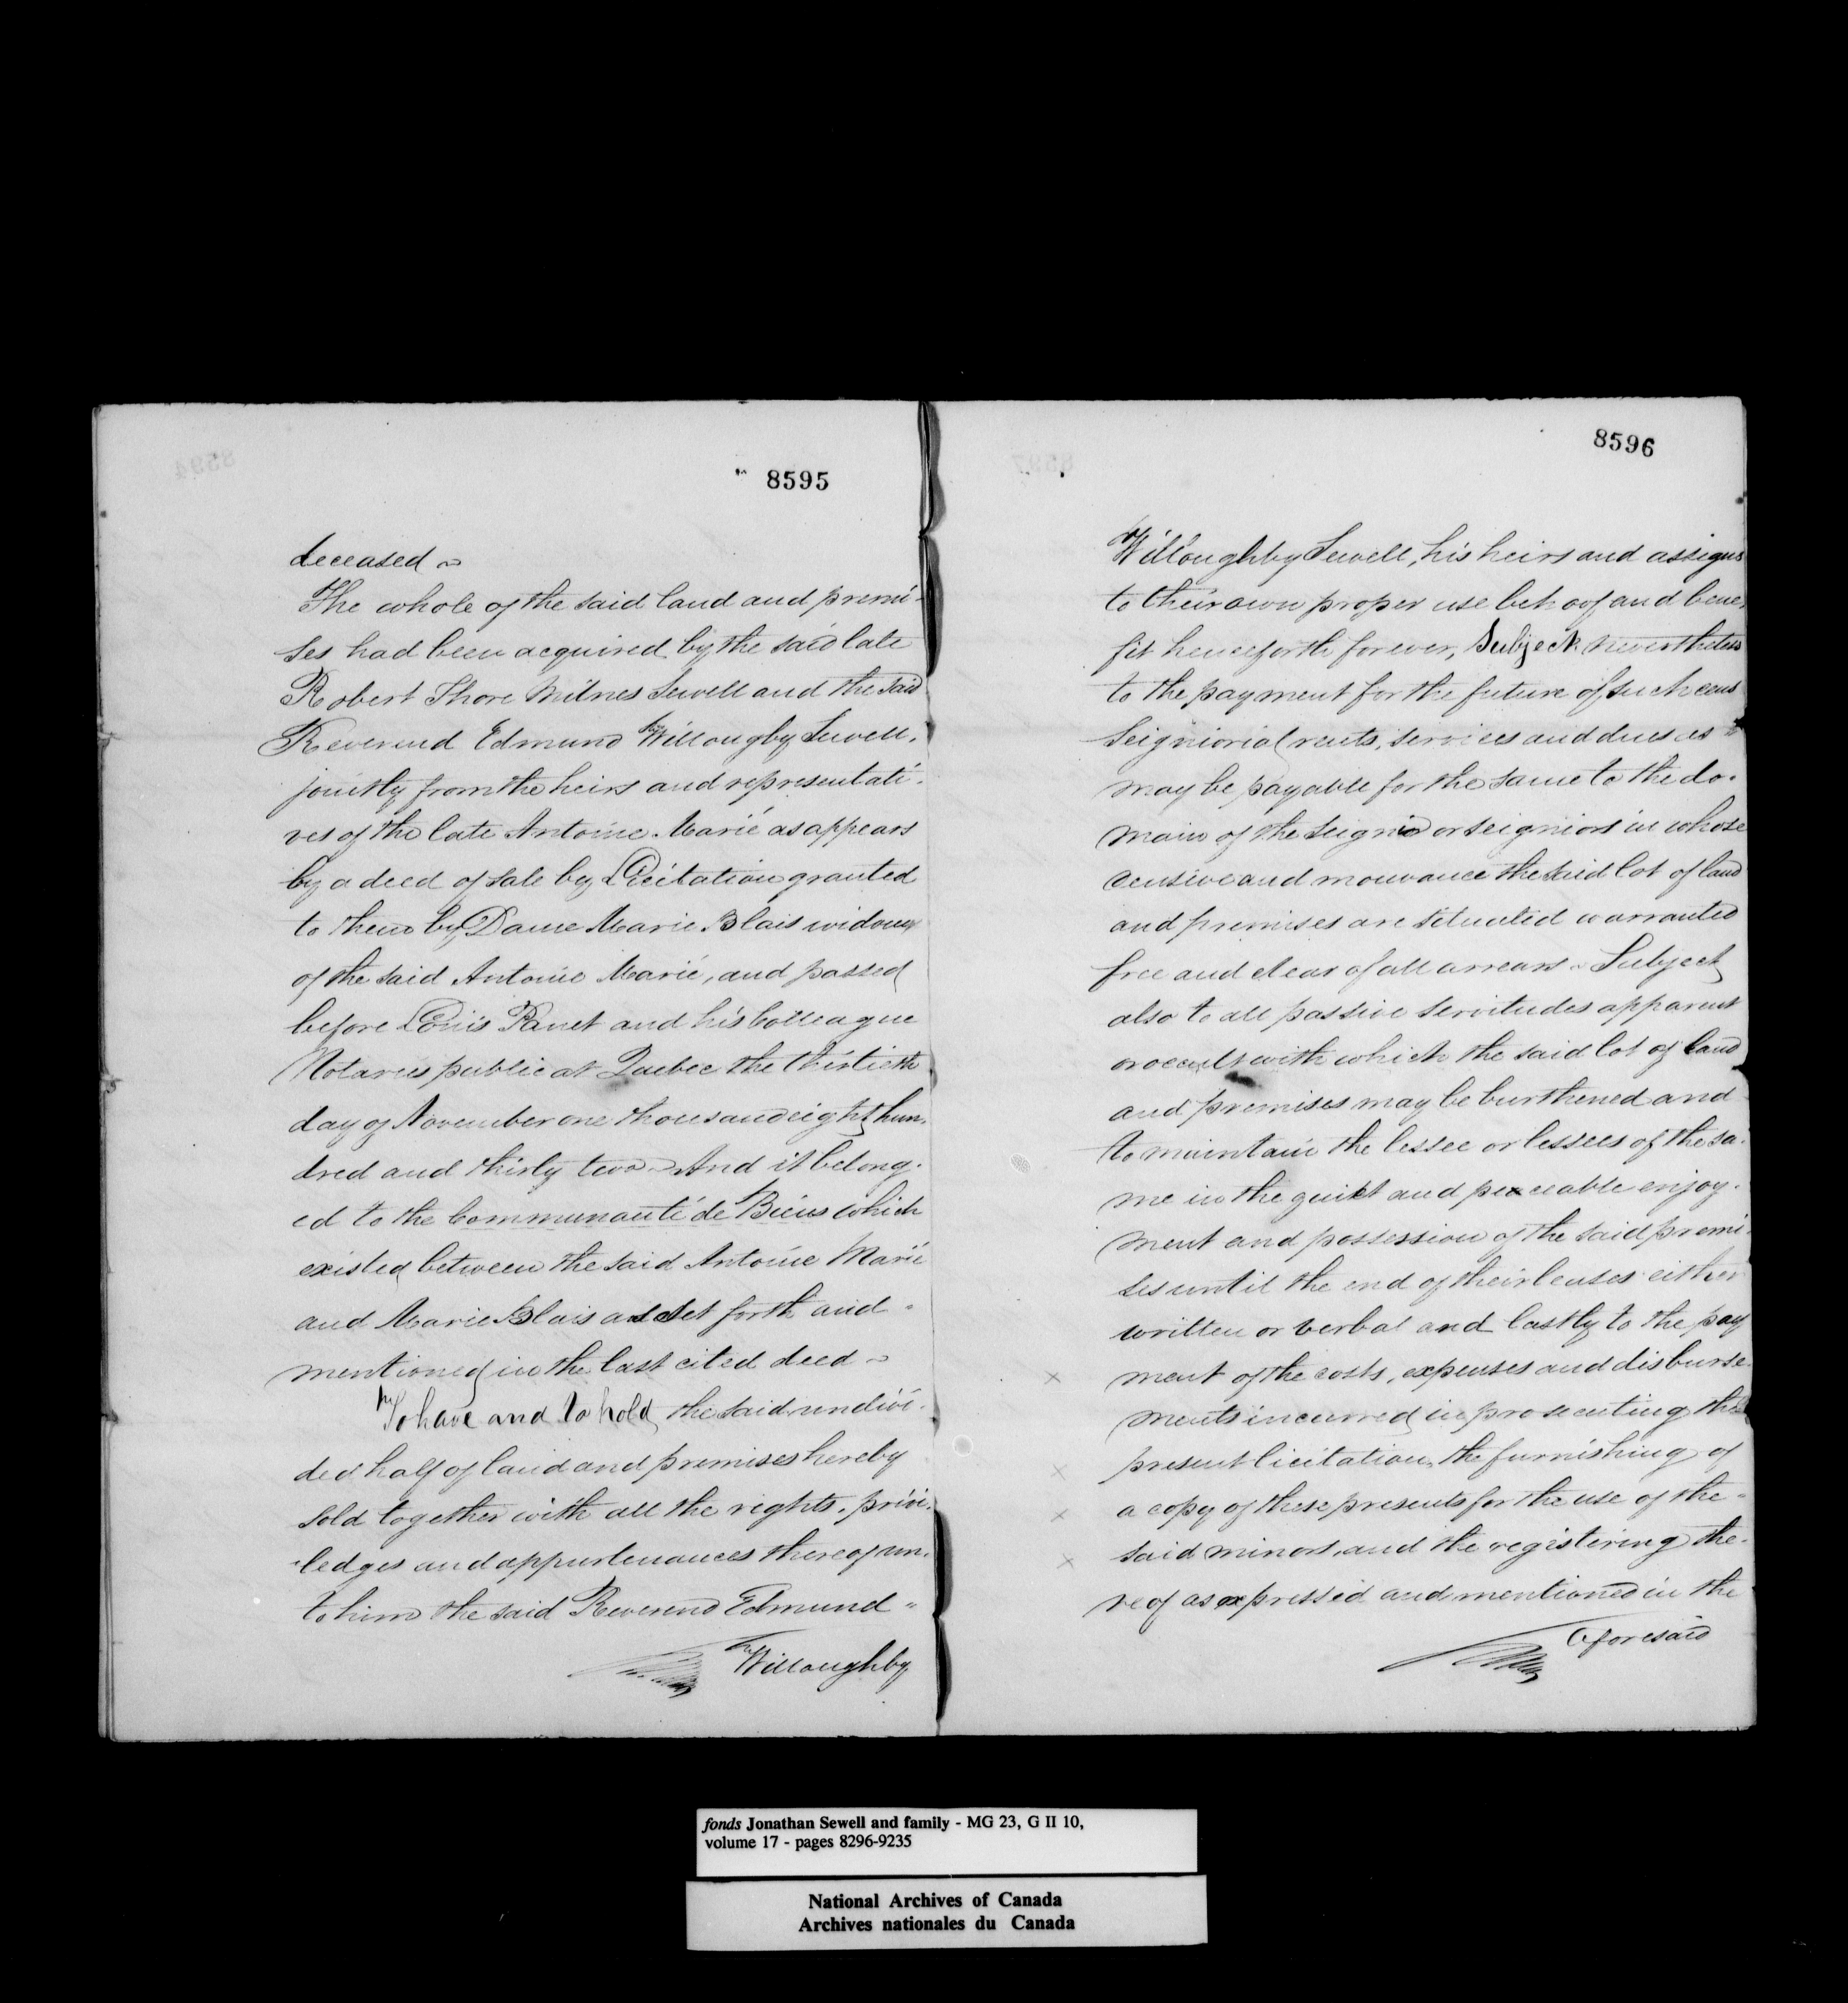 8595
deceased ~
The whole of the said land and premi-
ses had been acquired by the said late
Robert Shore Milnes Sewell and the said
Reverend Edmund Willougby Sewell,
jointly from the heirs and representati-
ves of the late Antoine Marié as appears
by a deed of sale by Licitation granted
to them by Dame Marie Blais widow
of the said Antoine Marié, and passed
before Louis Panet and his Colleague
Notaries public at Quebec the thirtieth
day of November one thousand eight hun-
dred and thirty two ~ And it belong-
ed to the Communauté de Biens which
existed between the said Antoine Marié
and Marie Blais as set forth and
mentioned in the last cited deed ~
To have and to hold the said undivi-
ded half of land and premises hereby
sold together with all the rights, privi-
ledges and appurtenances thereof un-
to him the said Reverend Edmund
Willoughby
8596
Willoughby Sewell, his heirs and assigns
to their own proper use behoof and bene-
fit henceforth forever, Subject nevertheless
to the payment for the future of such cens
Seigniorial rents, services and dues as
may be payable for the same to the do-
main of the Seignior or seigniors in whose
censive and mouvance the said lot of land
and premises are situated warranted
free and clear of all arrears ~ Subject
also to all passive servitudes apparent
or occult with which the said lot of land
and premises may be burthened and
to maintain the lessee or lessees of the sa-
me in the quiet and peaceable enjoy-
ment and possession of the said premi-
ses until the end of their leases either
written or verbal and lastly to the pay
ment of the costs, expenses and disburse-
ments incurred in prosecuting the
present licitation, the furnishing of
a copy of these presents for the use of the
said minors, and the registering the-
reof as expressed and mentioned in the
aforesaid
fonds Jonathan Sewell and family - MG 23, G II 10,
volume 17 - pages 8296-9235
National Archives of Canada
Archives nationales du Canada